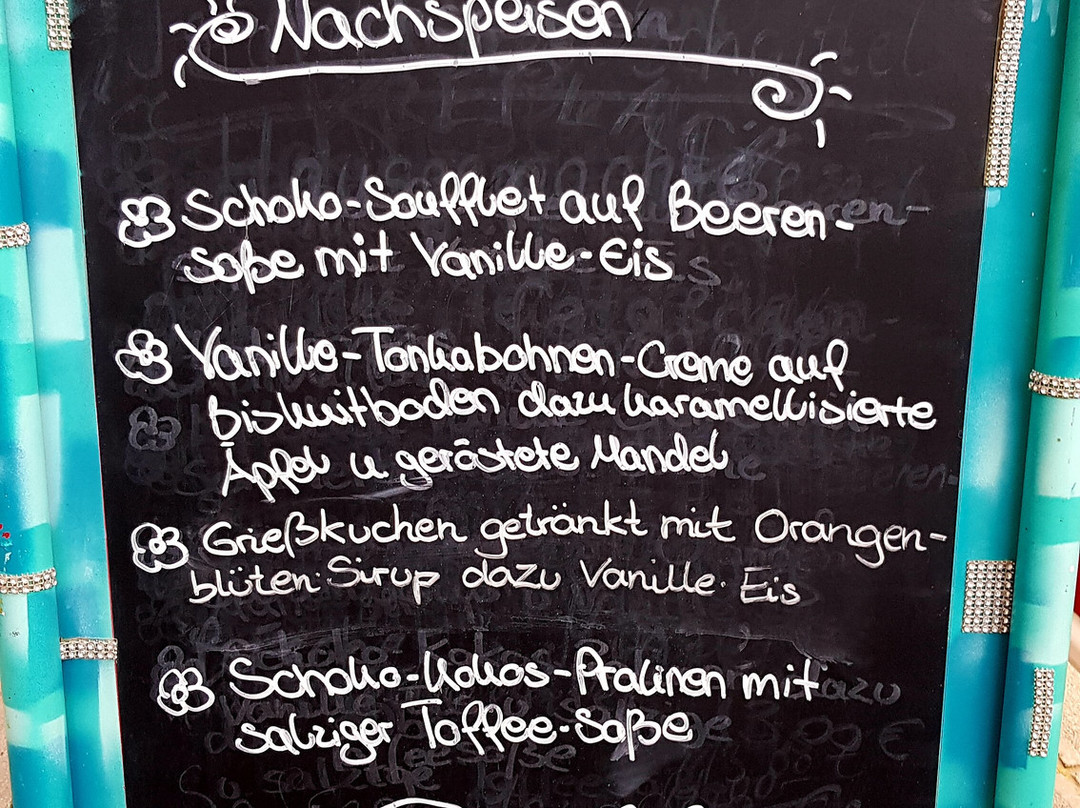 Nachspeisen
Schoko-Soufflet auf Beeren-
soße mit Vanille-Eis
Vanille-Tonkabohnen-Creme auf
Biskuitboden dazu karamellisierte
Äpfel u geröstete Mandel
Grießkuchen getränkt mit Orangen-
blüten-Sirup dazu Vanille-Eis
Schoko-Kokos-Pralinen mit
salziger Toffee-Soße